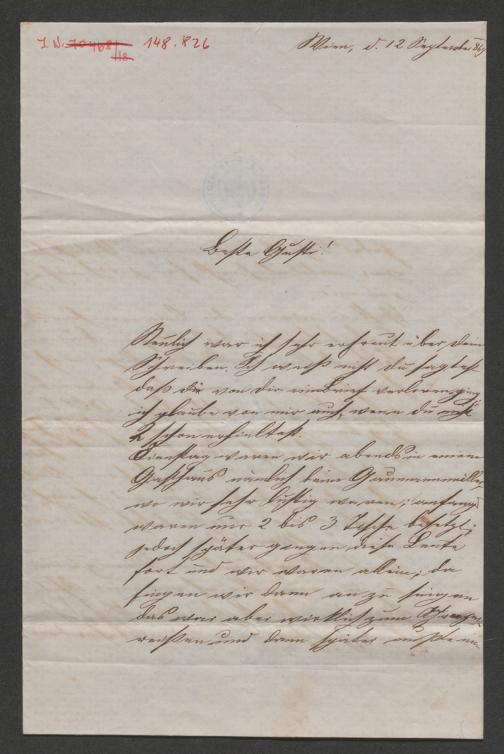 J. N. 70468/18 148.826
Wien, d. 12 September 869
Beste Gusti!
Neulich war ich sehr erfreut über dein
Schreiben. Ich weiß nicht du sagtest
daß dir von dir ein Brief verloren ging
ich glaube von mir auch, wenn du nicht
2 schon erhieltest.
Dienstag waren wir abends in einem
Gasthaus nämlich beim
wo wir sehr lustig waren; anfangs
waren nur 2 bis 3 Tische besetzt;
jedoch später gingen diese Leute
fort und wir waren allein, da
fingen wir dann an zu singen
das war aber wirklich zum
und dann später